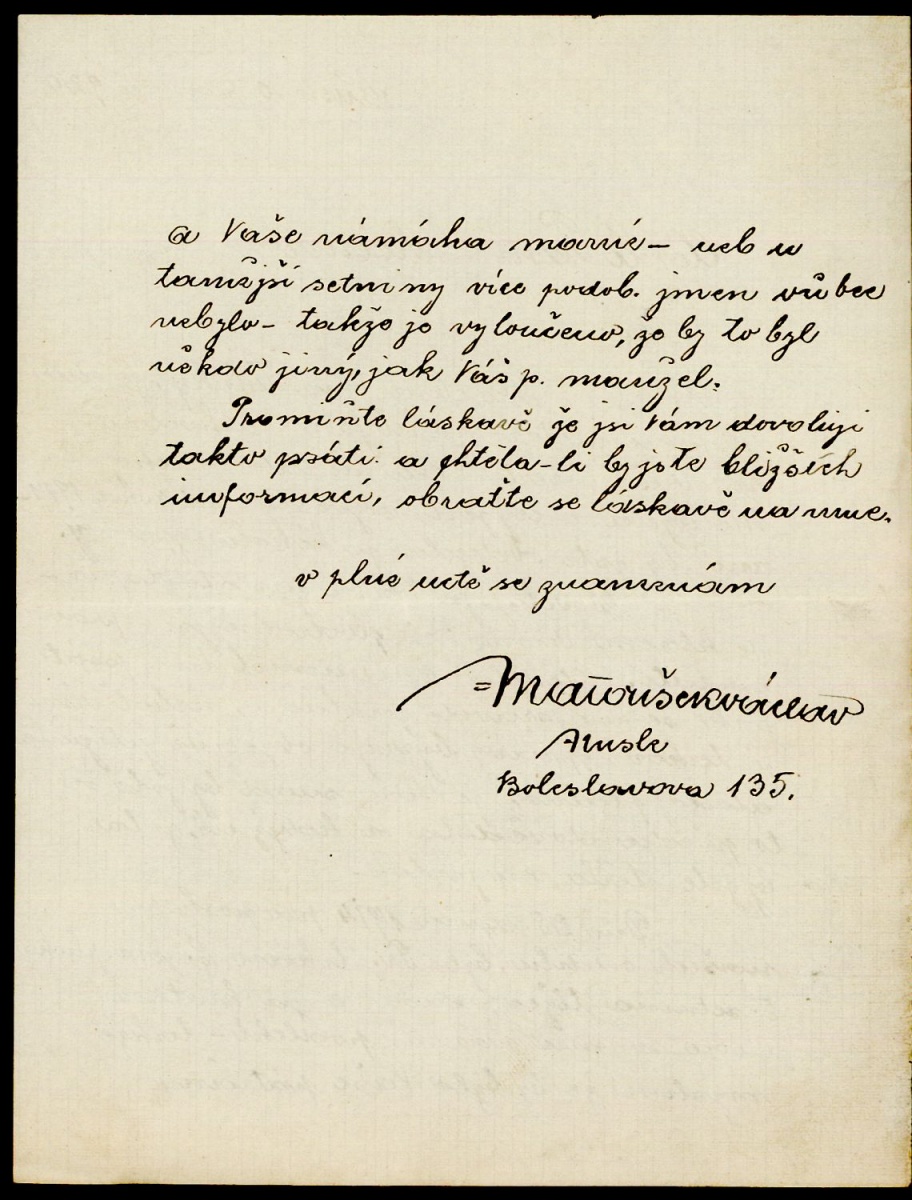 a Vaše námáha marné – neb u
tamější setniny více podob. jmen vůbec
nebylo – takže je vyloučeno, že by to byl
někdo jiný, jak Váš p. manžel.
Promiňte láskavě že jsi Vám dovoluji
takto psáti. a chtěla-li by jste bližších
informací, obraťte se láskavě na mne.
v plné uctě se znamenám
= Matoušek Václav
Nusle
Boleslavova 135.